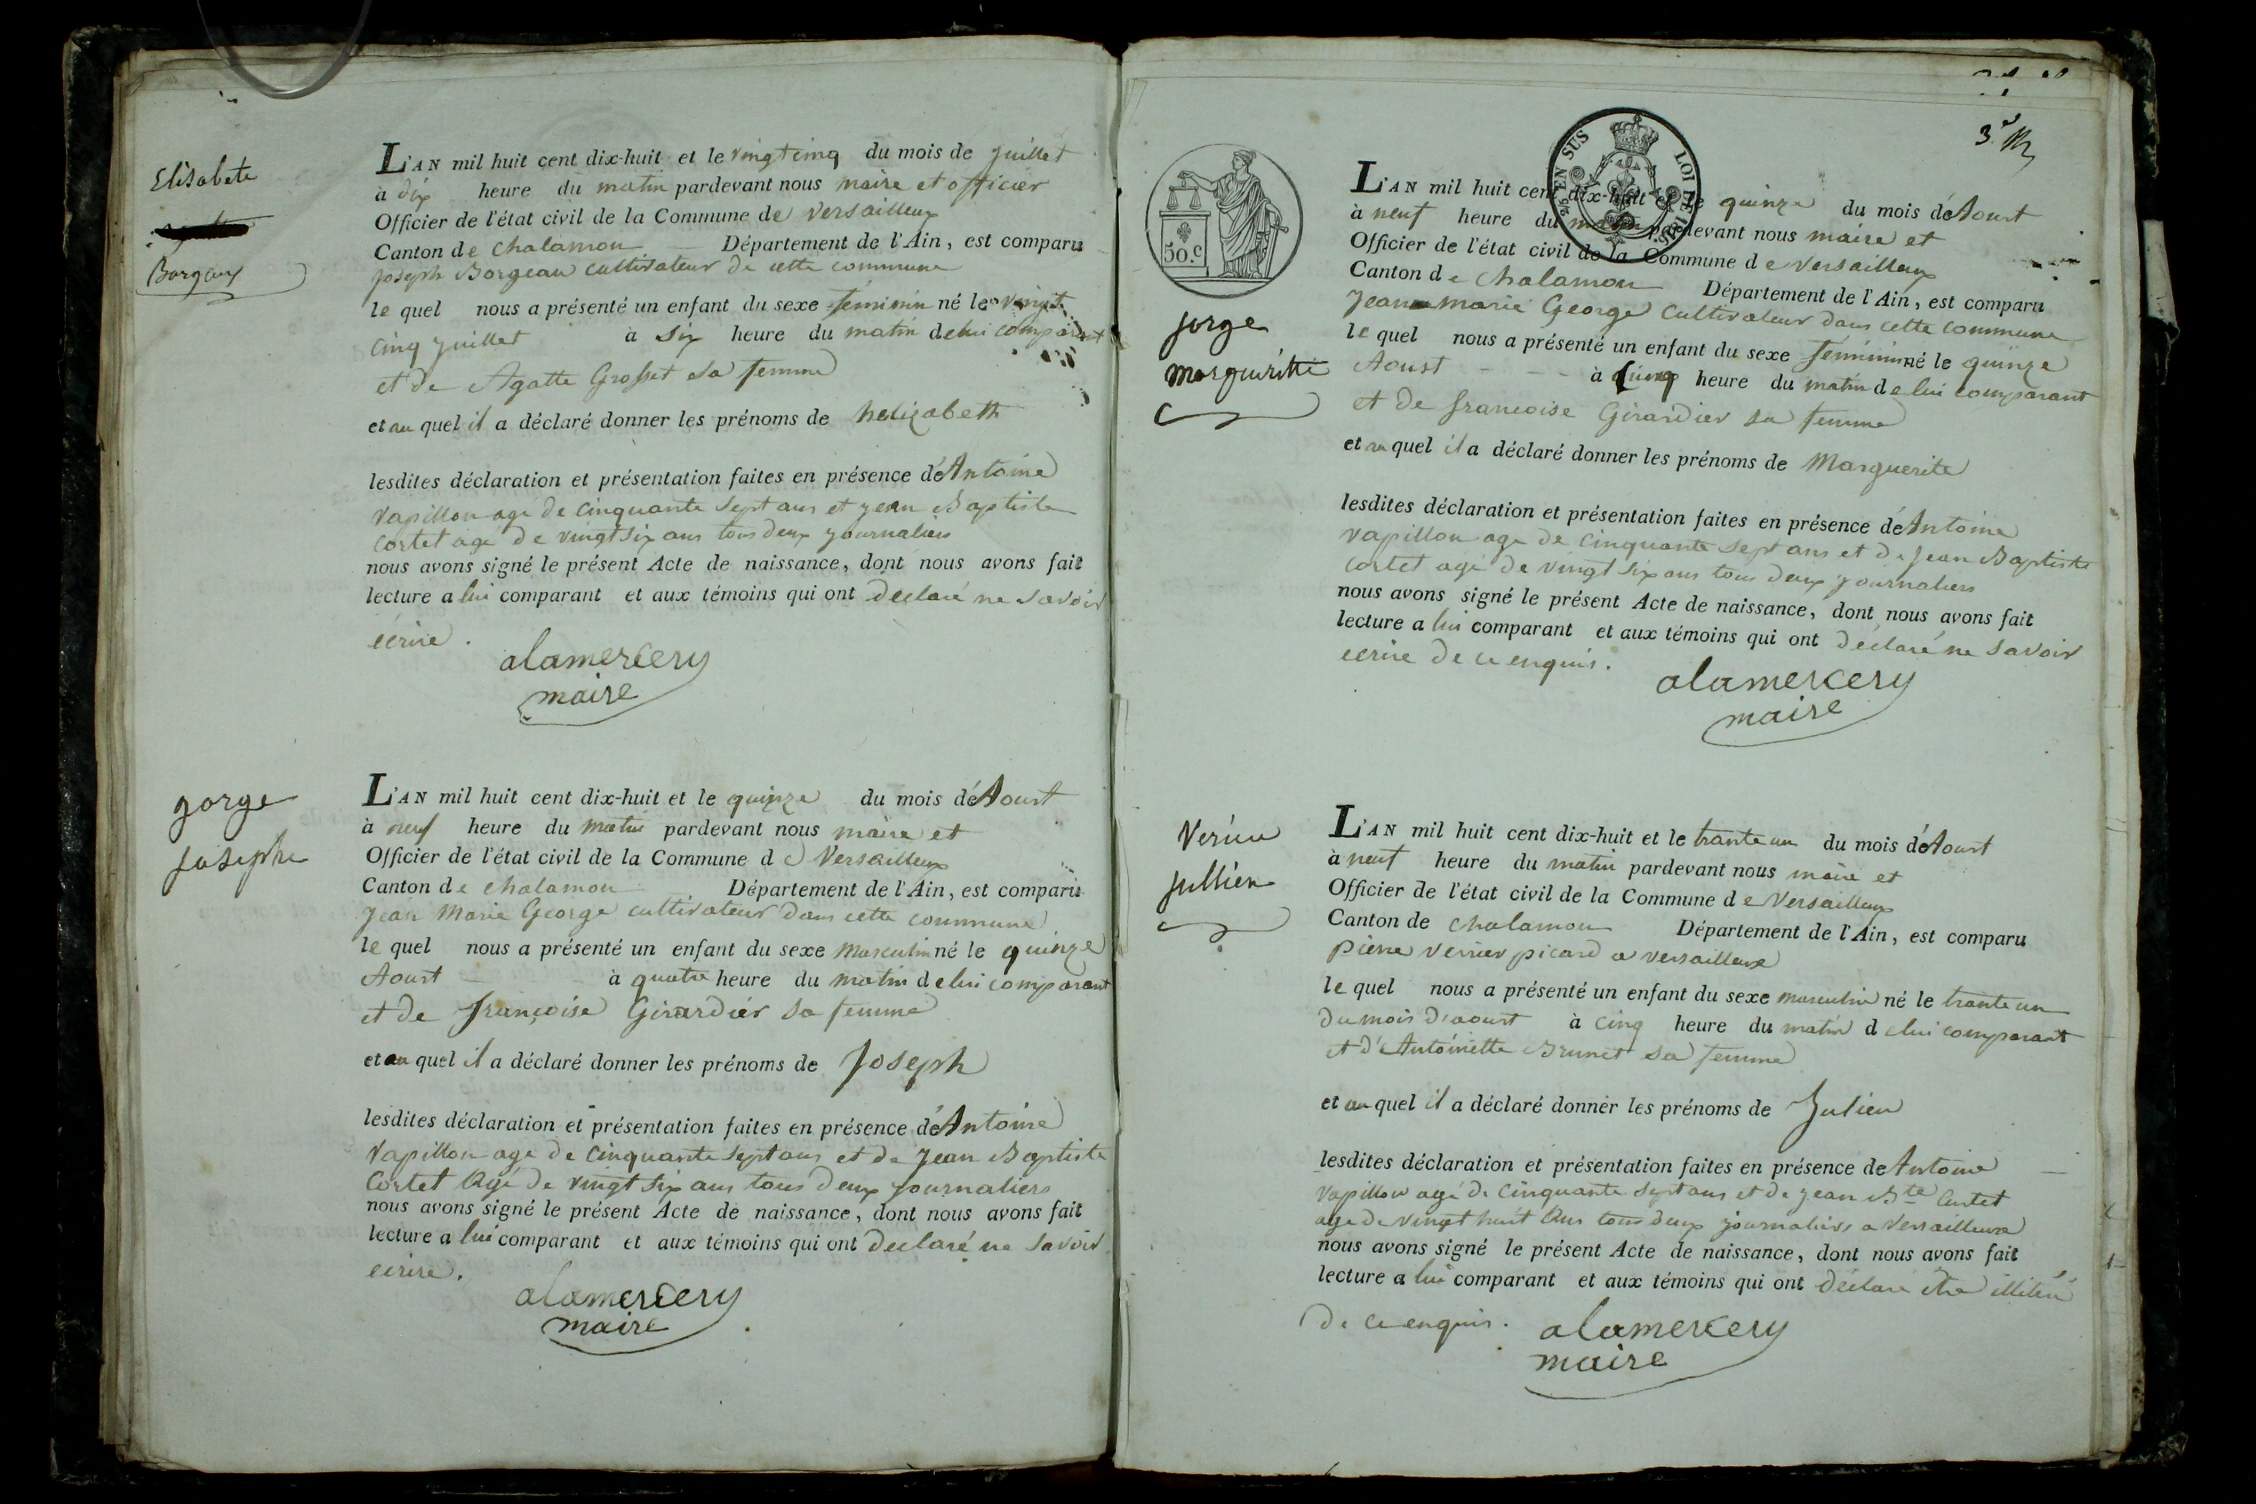 Elisabete
Borgeux
L'AN mil huit cent dix-huit et le vingt cinq du mois de juillet
à dix heure du matin pardevant nous maire et officier
Officier de l'état civil de la Commune de versailleux
Canton de chalamon Département de l'Ain, est comparu
joseph Borgeau cultivateur de cette commune
le quel nous a présenté un enfant du sexe féminin né le vingt
cinq juillet à six heure du matin de lui comparant
et de Agatte Grosset sa femme
et au quel il a déclaré donner les prénoms de helizabeth
lesdites déclaration et présentation faites en présence d'Antoine
vapillon agé de cinquante sept ans et jean Baptiste
cortet agé de vingt six ans tous deux journaliers
nous avons signé le présent Acte de naissance, dont nous avons fait
lecture a lui comparant et aux témoins qui ont déclaré ne savoir
écrire.
alamercery
maire
gorge
josephe
L'AN mil huit cent dix-huit et le quinze du mois d'Aoust
à neuf heure du matin pardevant nous maire et
Officier de l'état civil de la Commune de Versailleux
Canton de chalamon Département de l'Ain, est comparu
jean Marie George cultivateur dans cette commune
le quel nous a présenté un enfant du sexe masculin né le quinze
Aoust à quatre heure du matin de lui comparant
et de françoise Girardier sa femme
et au quel il a déclaré donner les prénoms de Joseph
lesdites déclaration et présentation faites en présence d'Antoine
Vapillon agé de cinquante sept ans et de Jean Baptiste
Cortet Agé de vingt six ans tous deux journaliers
nous avons signé le présent Acte de naissance, dont nous avons fait
lecture a lui comparant et aux témoins qui ont déclaré ne savoir
écrire.
alamercery
maire
3e
50.c
EN SUS LOI DE 1816
jorge
marguéritte
L'AN mil huit cent dix-huit et le quinze du mois d'Aoust
à neuf heure du matin pardevant nous maire et
Officier de l'état civil de la Commune de Versailleux
Canton de chalamon Département de l'Ain, est comparu
Jean marie George cultivateur dans cette commune
le quel nous a présenté un enfant du sexe féminin né le quinze
Aoust à cinq heure du matin de lui comparant
et de francoise Girardier sa femme
et au quel il a déclaré donner les prénoms de Marguerite
lesdites déclaration et présentation faites en présence d'Antoine
vapillon age de cinquante sept ans et de Jean Baptiste
cortet agé de vingt six ans tous deux journaliers
nous avons signé le présent Acte de naissance, dont nous avons fait
lecture a lui comparant et aux témoins qui ont déclaré ne savoir
ecrire de ce enquis.
alamercery
maire
Jullien
L'AN mil huit cent dix-huit et le trante un du mois d'Aoust
à neuf heure du matin pardevant nous maire et
Officier de l'état civil de la Commune de Versailleux
Canton de chalamon Département de l'Ain, est comparu
pierre verrier picard a versailleux
le quel nous a présenté un enfant du sexe masculin né le trante un
du mois d'aoust à cinq heure du matin de lui comparant
et d'Antoinette Brunet sa femme
et au quel il a déclaré donner les prénoms de Julien
lesdites déclaration et présentation faites en présence de Antoine
vapillon agé de cinquante sept ans et de jean Bte Cortet
age de vingt huit Ans tous deux journaliers a versailleux
nous avons signé le présent Acte de naissance, dont nous avons fait
lecture a lui comparant et aux témoins qui ont déclaré être illitéré
de ce enquis.
alamercery
maire